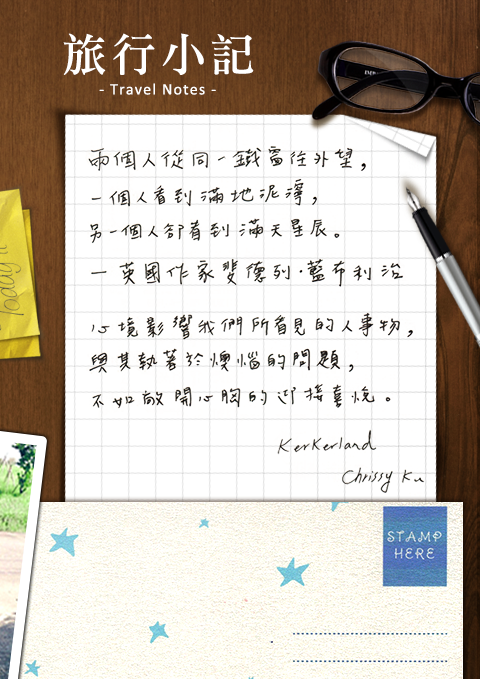 旅行小記
- Travel Notes -
兩個人從同一鐵窗往外望，
一個人看到滿地泥濘，
另一個人卻看到滿天星辰。
— 英國作家斐德列·藍布利治
心境影響我們所看見的人事物，
與其執著於懊惱的問題，
不如敞開心胸的迎接喜悅。
Kerkerland
Chrissy Ku
Today
STAMP
HERE